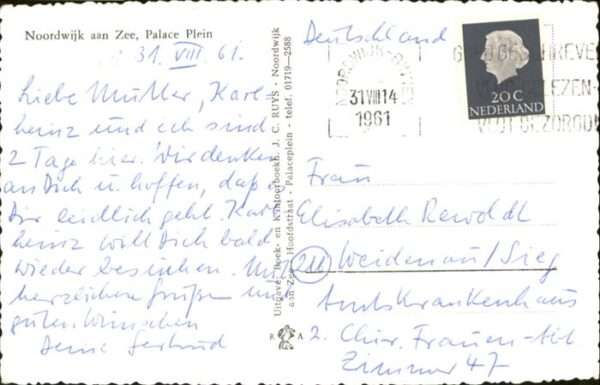 Noordwijk aan Zee, Palace Plein
31. VIII. 61.
Liebe Mutter, Karl-
heinz und ich sind
2 Tage hier. Wir denken
an Dich u. hoffen, daß es
Dir leidlich geht. Karl-
heinz will Dich bald
wieder besuchen. Mit
herzlichen Grüßen und
guten Wünschen
Deine Gertrud
Uitgave Boek- en Kantoorboekh. J. C. RUYS - Noordwijk
aan Zee, Hoofdstraat - Palaceplein - telef. 01719—2588
R A
Deutschland
NOORDWIJK-BINNEN
31 VIII 14
1961
20 C
NEDERLAND
Frau
Elisabeth Rewoldt
(21) Weidenau/Sieg
Amtskrankenhaus
2. Chir. Frauen-Abt
Zimmer 47-